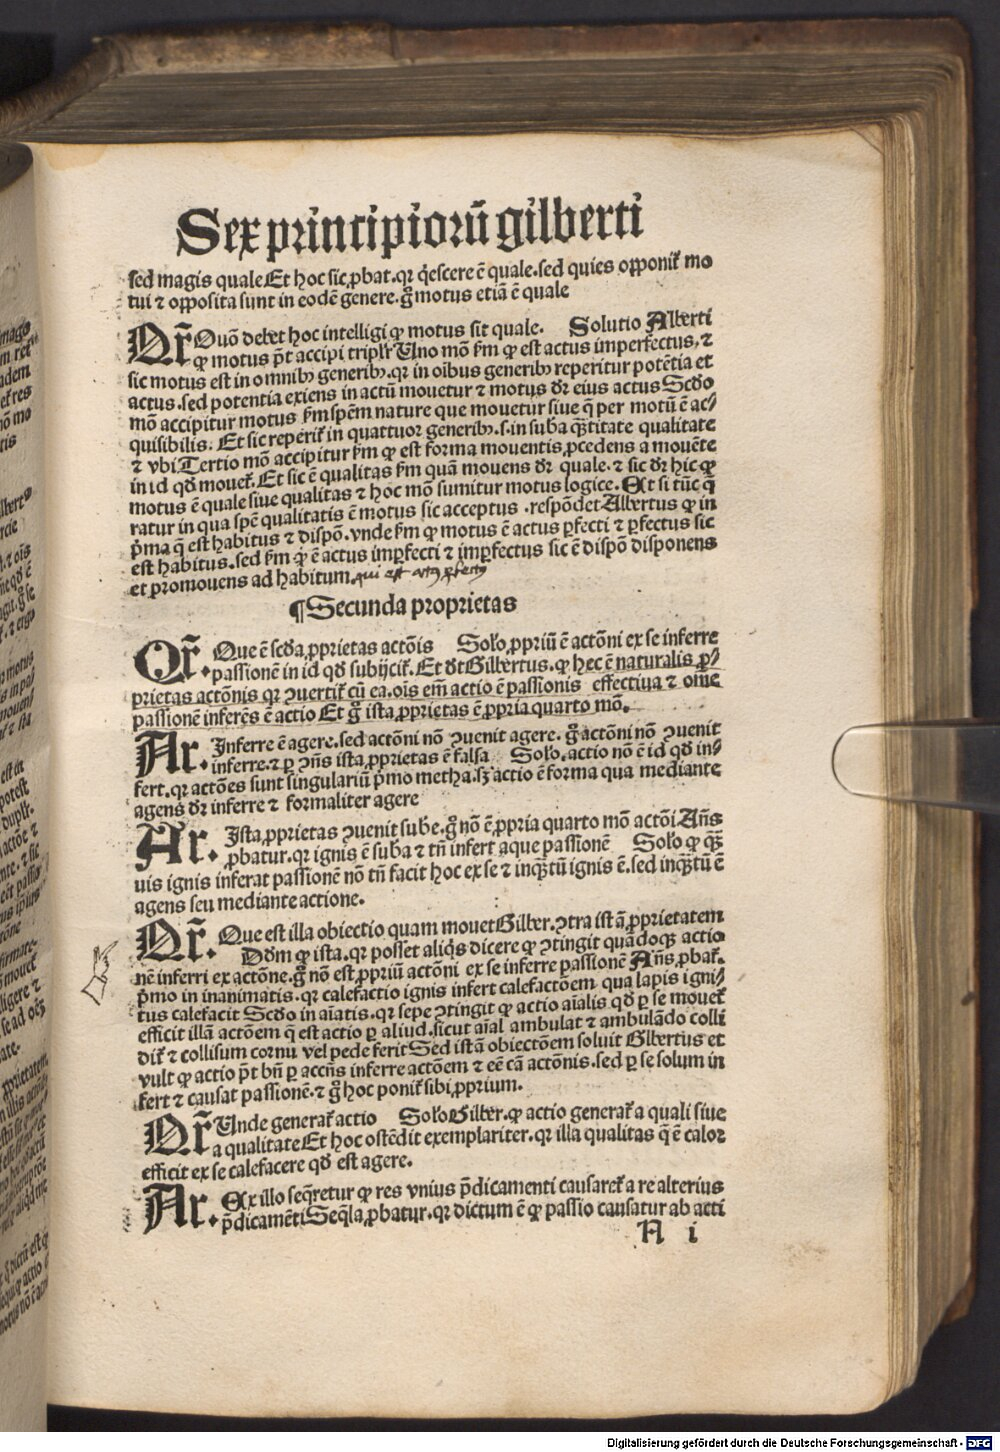 Sex principiorū gilberti
sed magis quale Et hoc sic ꝓbat. qꝛ q̇escere ē quale. sed quies oꝓponiť mo
tui ⁊ oꝓposita sunt in eodē genere. gͦ motus etiā ē quale
Qr̄ Quō debet hoc intelligi ꝙ motus sit quale. Solutio Alberti
ꝙ motus pt̄ accipi tripłr Uno mō ẜm ꝙ est actus imperfectus, ⁊
sic motus est in omnibꝫ generibꝫ. qꝛ in oībus generibꝫ reperitur potētia et
actus. sed potentia exiens in actū mouetur ⁊ motus dr̄ eius actus Scd̄o
mō accipitur motus ẜm spēm nature que mouetur siue q̄ per motū ē ac⸗
quisibilis. Et sic reperiť in quattuor generibꝫ. s. in suba q̄titate qualitate
⁊ vbi. Tertio mō accipitur ẜm ꝙ est forma mouentis ꝓcedens a mouēte
in id qd̄ mouet. Et sic ē qualitas ẜm quā mouens dr̄ quale. ⁊ sic dr̄ hic ꝙ
motus ē quale siue qualitas ⁊ hoc mō sumitur motus logice. Et si tūc q̄
ratur in qua spē qualitatis ē motus sic acceptus. respōdet Albertus ꝙ in
p̄ma q̄ est habitus ⁊ dispō. vnde ẜm ꝙ motus ē actus ꝑfecti ⁊ ꝑfectus sic
est habitus. sed ẜm ꝙ ē actus imꝑfecti ⁊ imꝑfectus sic ē dispō disponens
et promouens ad habitum. qui est actꝰ ꝑfectꝰ
¶Secunda proprietas
Qr̄. Que ē scd̄a ꝓprietas actōis Solo. ꝓpriū ē actōni ex se inferre
passionē in id qd̄ subijciť. Et dt̄ Gilbertus. ꝙ hec ē naturalis ꝓ⸗
prietas actōnis qꝛ ↄuertiť cū ea. oīs em̄ actio ē passionis effectiua ⁊ om̄e
passionē inferēs ē actio Et gͦ ista ꝓprietas ē ꝓpria quarto mō.
Ar. Inferre ē agere. sed actōni nō ↄuenit agere. gͦ actōni nō ↄuenit
inferre. ⁊ ꝑ ↄn̄s ista ꝓprietas ē falsa Solo. actio nō ē id qd̄ in⸗
fert. qꝛ actōes sunt singulariū p̄mo metha. sꝫ actio ē forma qua mediante
agens dr̄ inferre ⁊ formaliter agere
Ar. Ista ꝓprietas ↄuenit sube. gͦ nō ē ꝓpria quarto mō actōi Añs
ꝓbatur. qꝛ ignis ē suba ⁊ tn̄ infert aque passionē Solo ꝙ q̄ꝫ
uis ignis inferat passionē nō tn̄ facit hoc ex se ⁊ inq̄ꝫtū ignis ē. sed inq̄ꝫtū ē
agens seu mediante actione.
Qr̄. Que est illa obiectio quam mouet Gilber. ↄtra istā ꝓprietatem
Dd̄m ꝙ ista. qꝛ posset aliq̇s dicere ꝙ ↄtingit quādoqꝫ actio
nē inferri ex actōne. gͦ nō est ꝓpriū actōni ex se inferre passionē Añs ꝓbať.
p̄mo in inanimatis. qꝛ calefactio ignis infert calefactōem qua lapis igni⸗
tus calefacit Scd̄o in aīatis. qꝛ sepe ↄtingit ꝙ actio aīalis qd̄ ꝑ se mouet
efficit illā actōem q̄ est actio ꝑ aliud. sicut aīal ambulat ⁊ ambulādo colli
diť ⁊ collisum cornu vel pede ferit Sed istā obiectōem soluit Gilbertus et
vult ꝙ actio pt̄ bn̄ ꝑ accn̄s inferre actōem ⁊ eē cā actōnis. sed ꝑ se solum in
fert ⁊ causat passionē. ⁊ gͦ hoc poniť sibi ꝓprium.
Qr̄ Unde generať actio Solo Gilber. ꝙ actio generať a quali siue
a qualitate Et hoc ostēdit exemplariter. qꝛ illa qualitas q̄ ē calor
efficit ex se calefacere qd̄ est agere.
Ar. Ex illo seq̄retur ꝙ res vnius p̄dicamenti causareť a re alterius
p̄dicamēti Seq̄la ꝓbatur. qꝛ dictum ē ꝙ passio causatur ab acti
A i
Digitalisierung gefördert durch die Deutsche Forschungsgemeinschaft - DFG